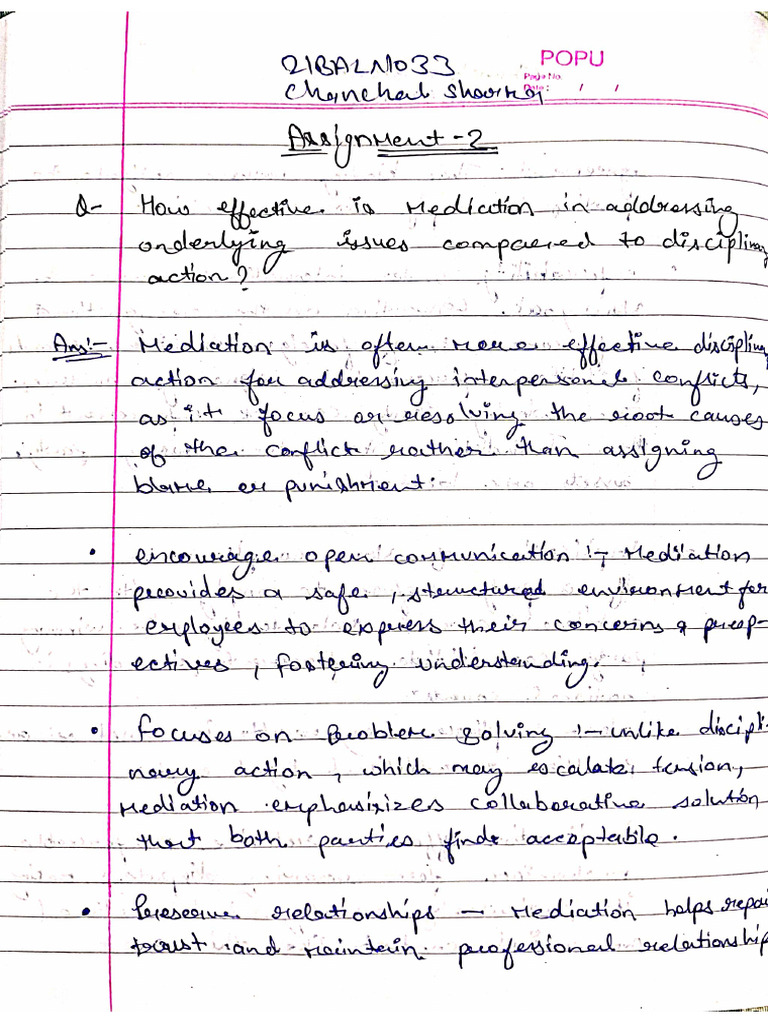 21BALN033
POPU
Page No.
Date: / /
Chanchal Sharma
Assignment-2
Q- How effective is Mediation in addressing
underlying issues compared to disciplinary
action?
Ans:- Mediation is often more effective disciplin
action for addressing interpersonal conflicts,
as it focus on resolving the root causes
of the conflict rather than assigning
blame or punishment:-
• encourage open communication :- Mediation
provides a safe, structured environment for
employees to express their concerns & presp-
ectives, fostering understanding.
• focuses on problem solving :- unlike discipli
nary action, which may escalate tension,
Mediation emphasizizes collaborative solution
that both parties finds acceptable.
• Preserve relationships - Mediation helps repai
trust and maintain professional relationship